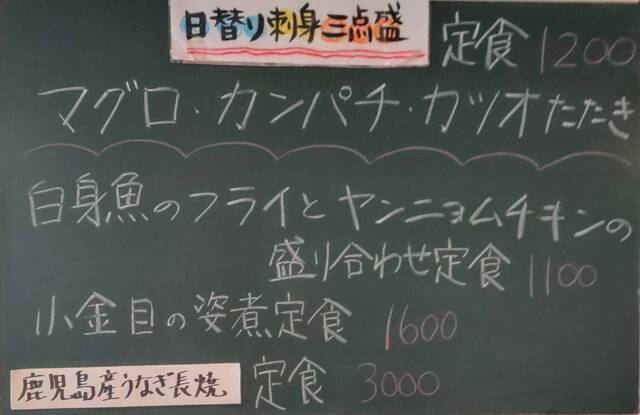 日替り刺身三点盛 定食 1200
マグロ・カンパチ・カツオたたき
白身魚のフライとヤンニョムチキンの
盛り合わせ定食 1100
小金目の姿煮定食 1600
鹿児島産うなぎ長焼 定食 3000